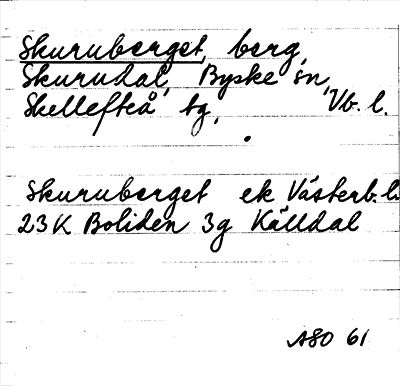 Skuruberget, berg,
Skurudal, Byske sn,
Skellefteå tg, Vb. l.
Skuruberget ek Västerb. l.
23K Boliden 3g Källdal
ASO 61